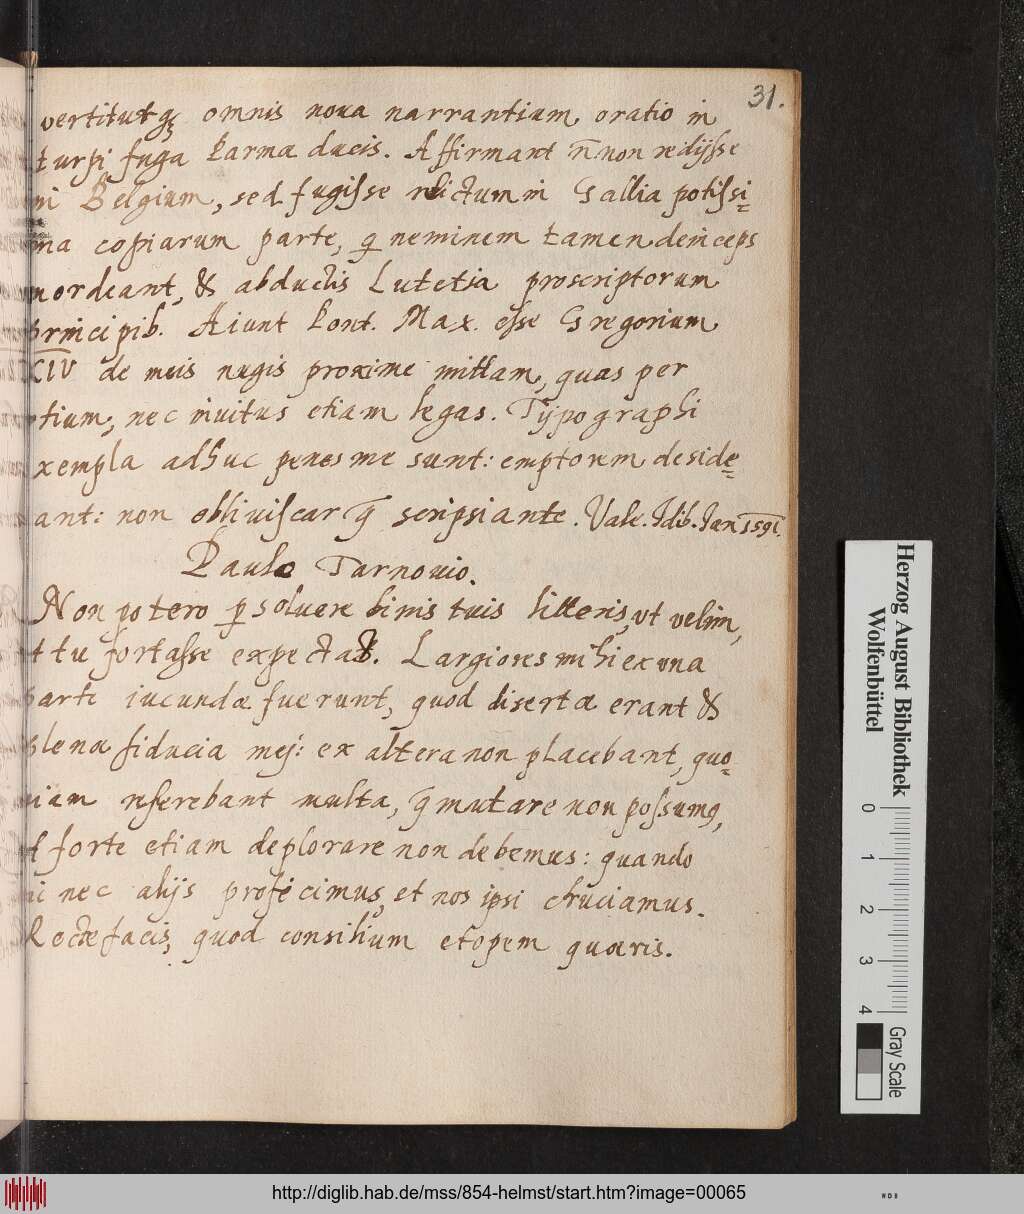 31.
vertitutq; omnis noua narrantium oratio in
turpi fuga Parmæ ducis. Affirmant n̄ non redijsse
in Belgium, sed fugisse relictum in Gallia potissi=
ma copiarum parte, q neminem tamen deinceps
mordeant, & abductis Lutetia proscriptorum
principib. Aiunt Pont. Max. esse Gregorium
XIV de meis nugis proxime mittam, quas per
tium, nec inuitus etiam legas. Typographi
xempla adhuc penes me sunt: emptorem deside=
ant: non obliuiscar q̃ scripsi ante. Vale. Idib. Jan 1591.
Paulo Tarnouio.
Non potero p soluere binis tuis litteris, vt velim,
t tu fortasse expectas. Largiores mihi ex vna
parte iucundæ fuerunt, quod disertæ erant &
plenæ fiducia mej: ex altera non placebant, quo=
niam referebant multa, q̃ mutare non possumq,
forte etiam deplorare non debemus: quando
ni nec alijs proficimus, et nos ipsi cruciamus.
Recte facis, quod consilium et opem quæris.
Herzog August Bibliothek
Wolfenbüttel
0 1 2 3 4
Gray Scale
http://diglib.hab.de/mss/854-helmst/start.htm?image=00065